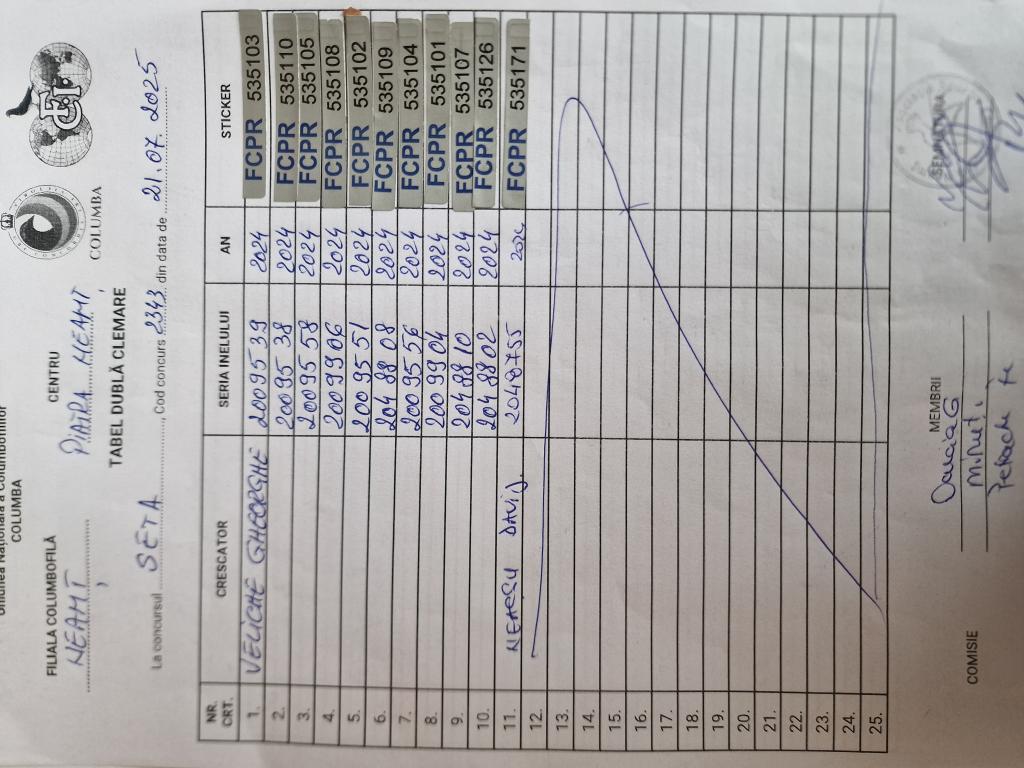 Uniunea Națională a Columbofililor
COLUMBA
COLUMBA
FCI
FILIALA COLUMBOFILĂ
NEAMȚ
CENTRU
PIATRA NEAMȚ
TABEL DUBLĂ CLEMARE
La concursul SETA, Cod concurs 2343 din data de 21.07.2025
NR. CRT. CRESCATOR SERIA INELULUI AN STICKER
1. VELICHE GHEORGHE 2009539 2024 FCPR 535103
2. 2009538 2024 FCPR 535110
3. 2009558 2024 FCPR 535105
4. 2009906 2024 FCPR 535108
5. 2009551 2024 FCPR 535102
6. 2048808 2024 FCPR 535109
7. 2009556 2024 FCPR 535104
8. 2009904 2024 FCPR 535101
9. 2048810 2024 FCPR 535107
10. 2048802 2024 FCPR 535126
11. DAVID 2048755 2024 FCPR 535171
12.
13.
14.
15.
16.
17.
18.
19.
20.
21.
22.
23.
24.
25.
COMISIE
MEMBRII
SEMNATURA